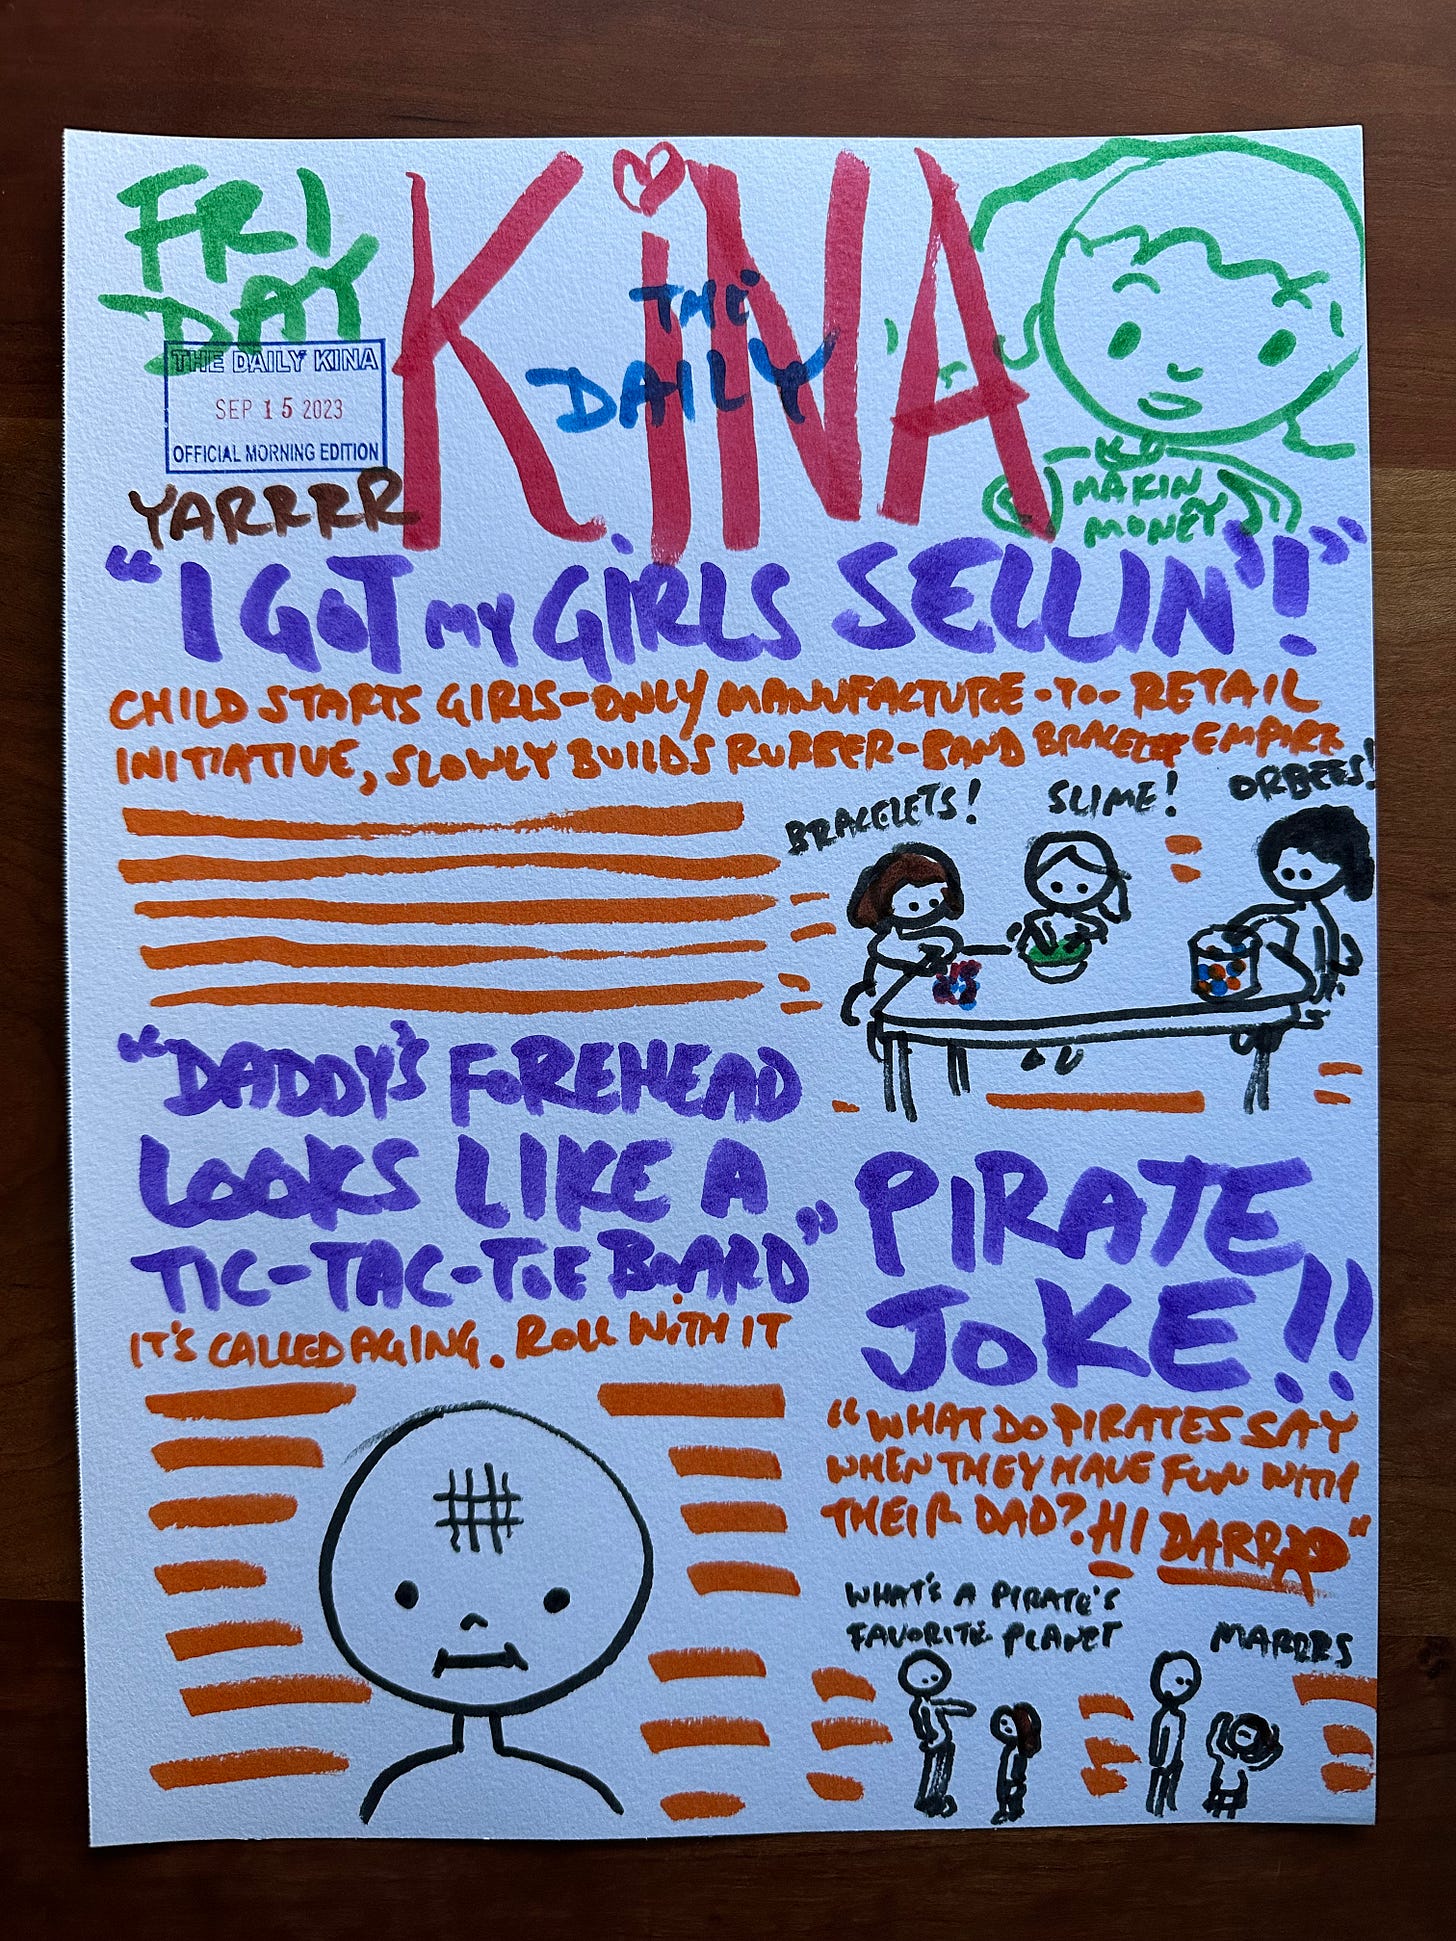 FRI
DAY
THE DAILY KINA
SEP 15 2023
OFFICIAL MORNING EDITION
YARRRR
KiNA
THE
DAILY
MAKIN
MONEY
"I GOT MY GiRLS SELLIN'!"
CHILD STARTS GIRLS-ONLY MANUFACTURE-TO-RETAIL
INITIATIVE, SLOWLY BUILDS RUBBER-BAND BRACELET EMPIRE
BRACELETS!
SLIME!
ORBEES!
"DADDY'S FOREHEAD
LOOKS LIKE A
TIC-TAC-TOE BOARD"
IT'S CALLED AGING. ROLL WiTH IT
PIRATE
JOKE!!
"WHAT DO PIRATES SAY
WHEN THEY HAVE FUN WITH
THEIR DAD? HI DARRRD"
WHAT'S A PIRATE'S
FAVORITE PLANET
MARRRS